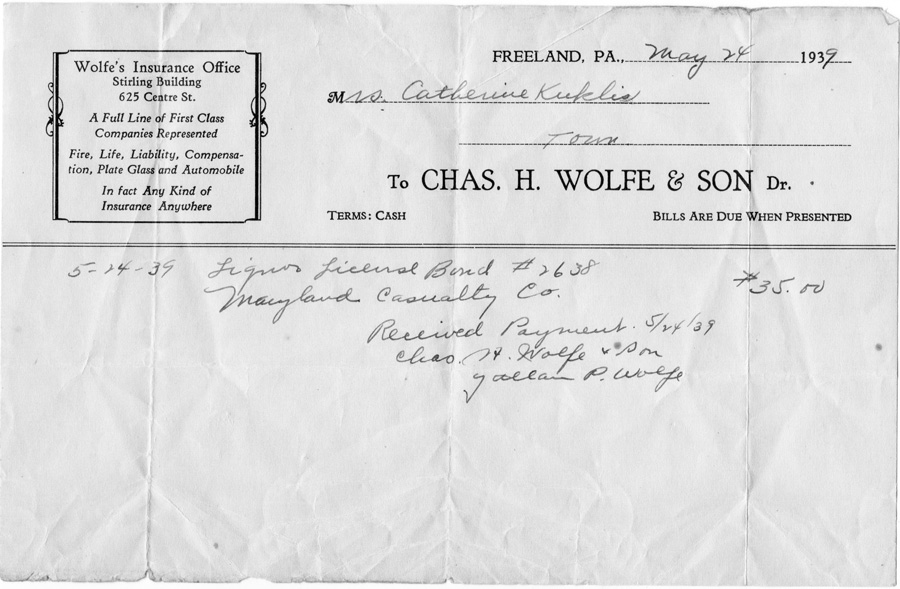 Wolfe's Insurance Office
Stirling Building
625 Centre St.
A Full Line of First Class
Companies Represented
Fire, Life, Liability, Compensa-
tion, Plate Glass and Automobile
In fact Any Kind of
Insurance Anywhere
FREELAND, PA., May 24 1939
Mrs. Catherine Kuklis
Town
To CHAS. H. WOLFE & SON Dr.
TERMS: CASH BILLS ARE DUE WHEN PRESENTED
5-24-39 Liquor License Bond #2638
Maryland Casualty Co. $35.00
Received Payment. 5/24/39
Chas. H. Wolfe & Son
P. Wolfe